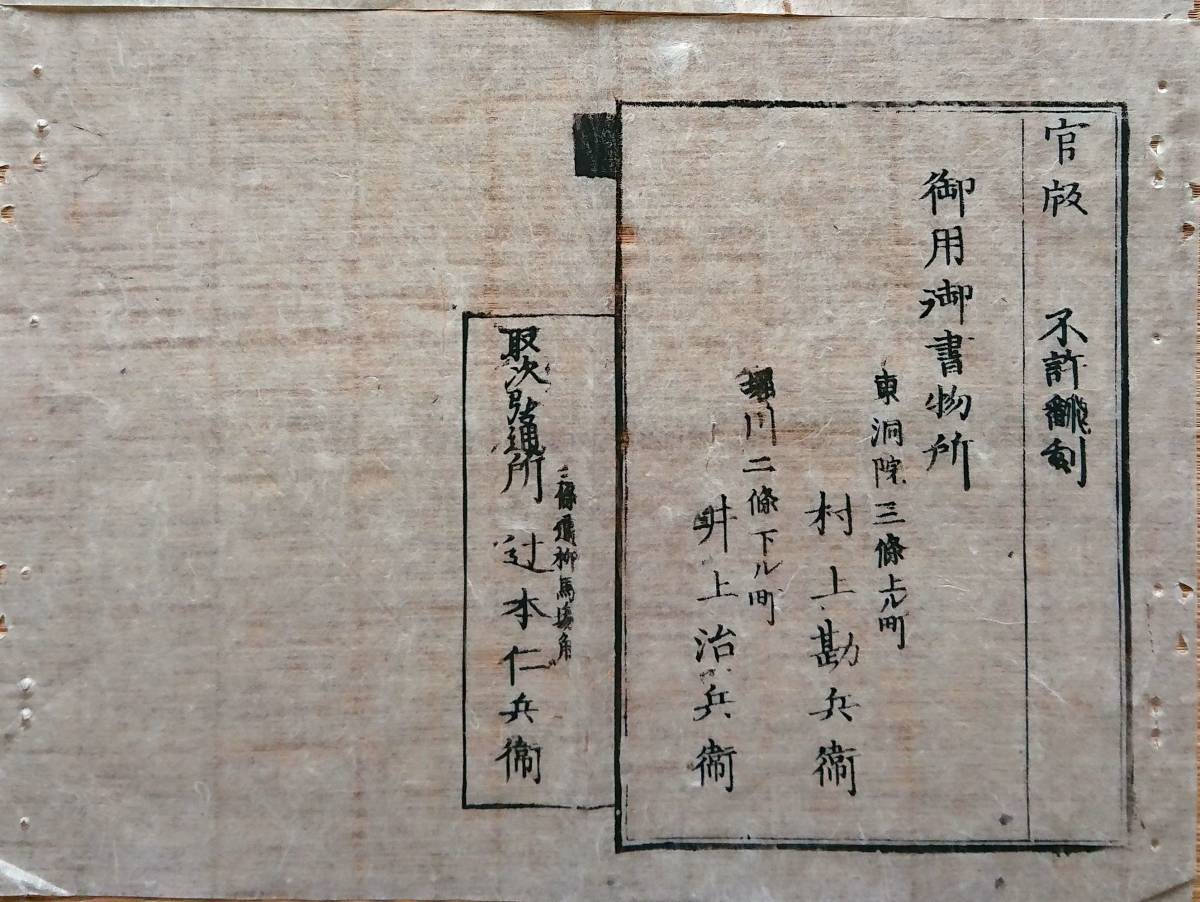 官版 不許翻刻
御用御書物所
東洞院三條上ル町
村上勘兵衞
堀川二條下ル町
井上治兵衞
三條通柳馬場角
取次弘通所 辻本仁兵衞